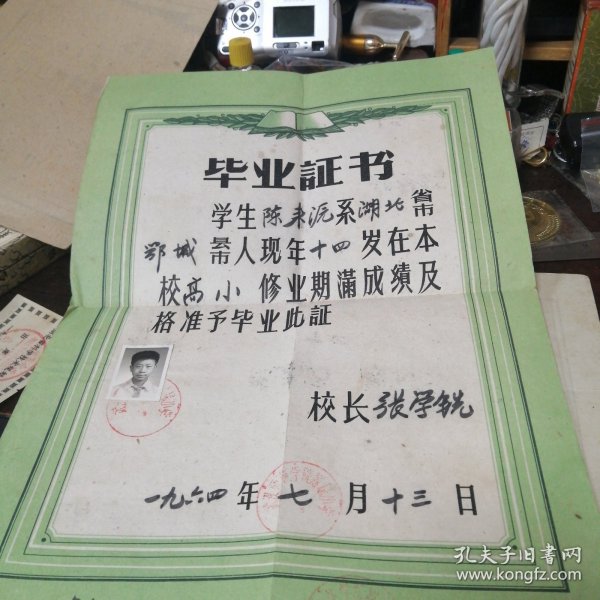 毕业証书
学生陈来沅系湖北省市
鄂城县人现年十四岁在本
校高小修业期滿成績及
格准予毕业此証
校长張学銑
一九六四年七月十三日
孔夫子旧書网
www.kongfz.com